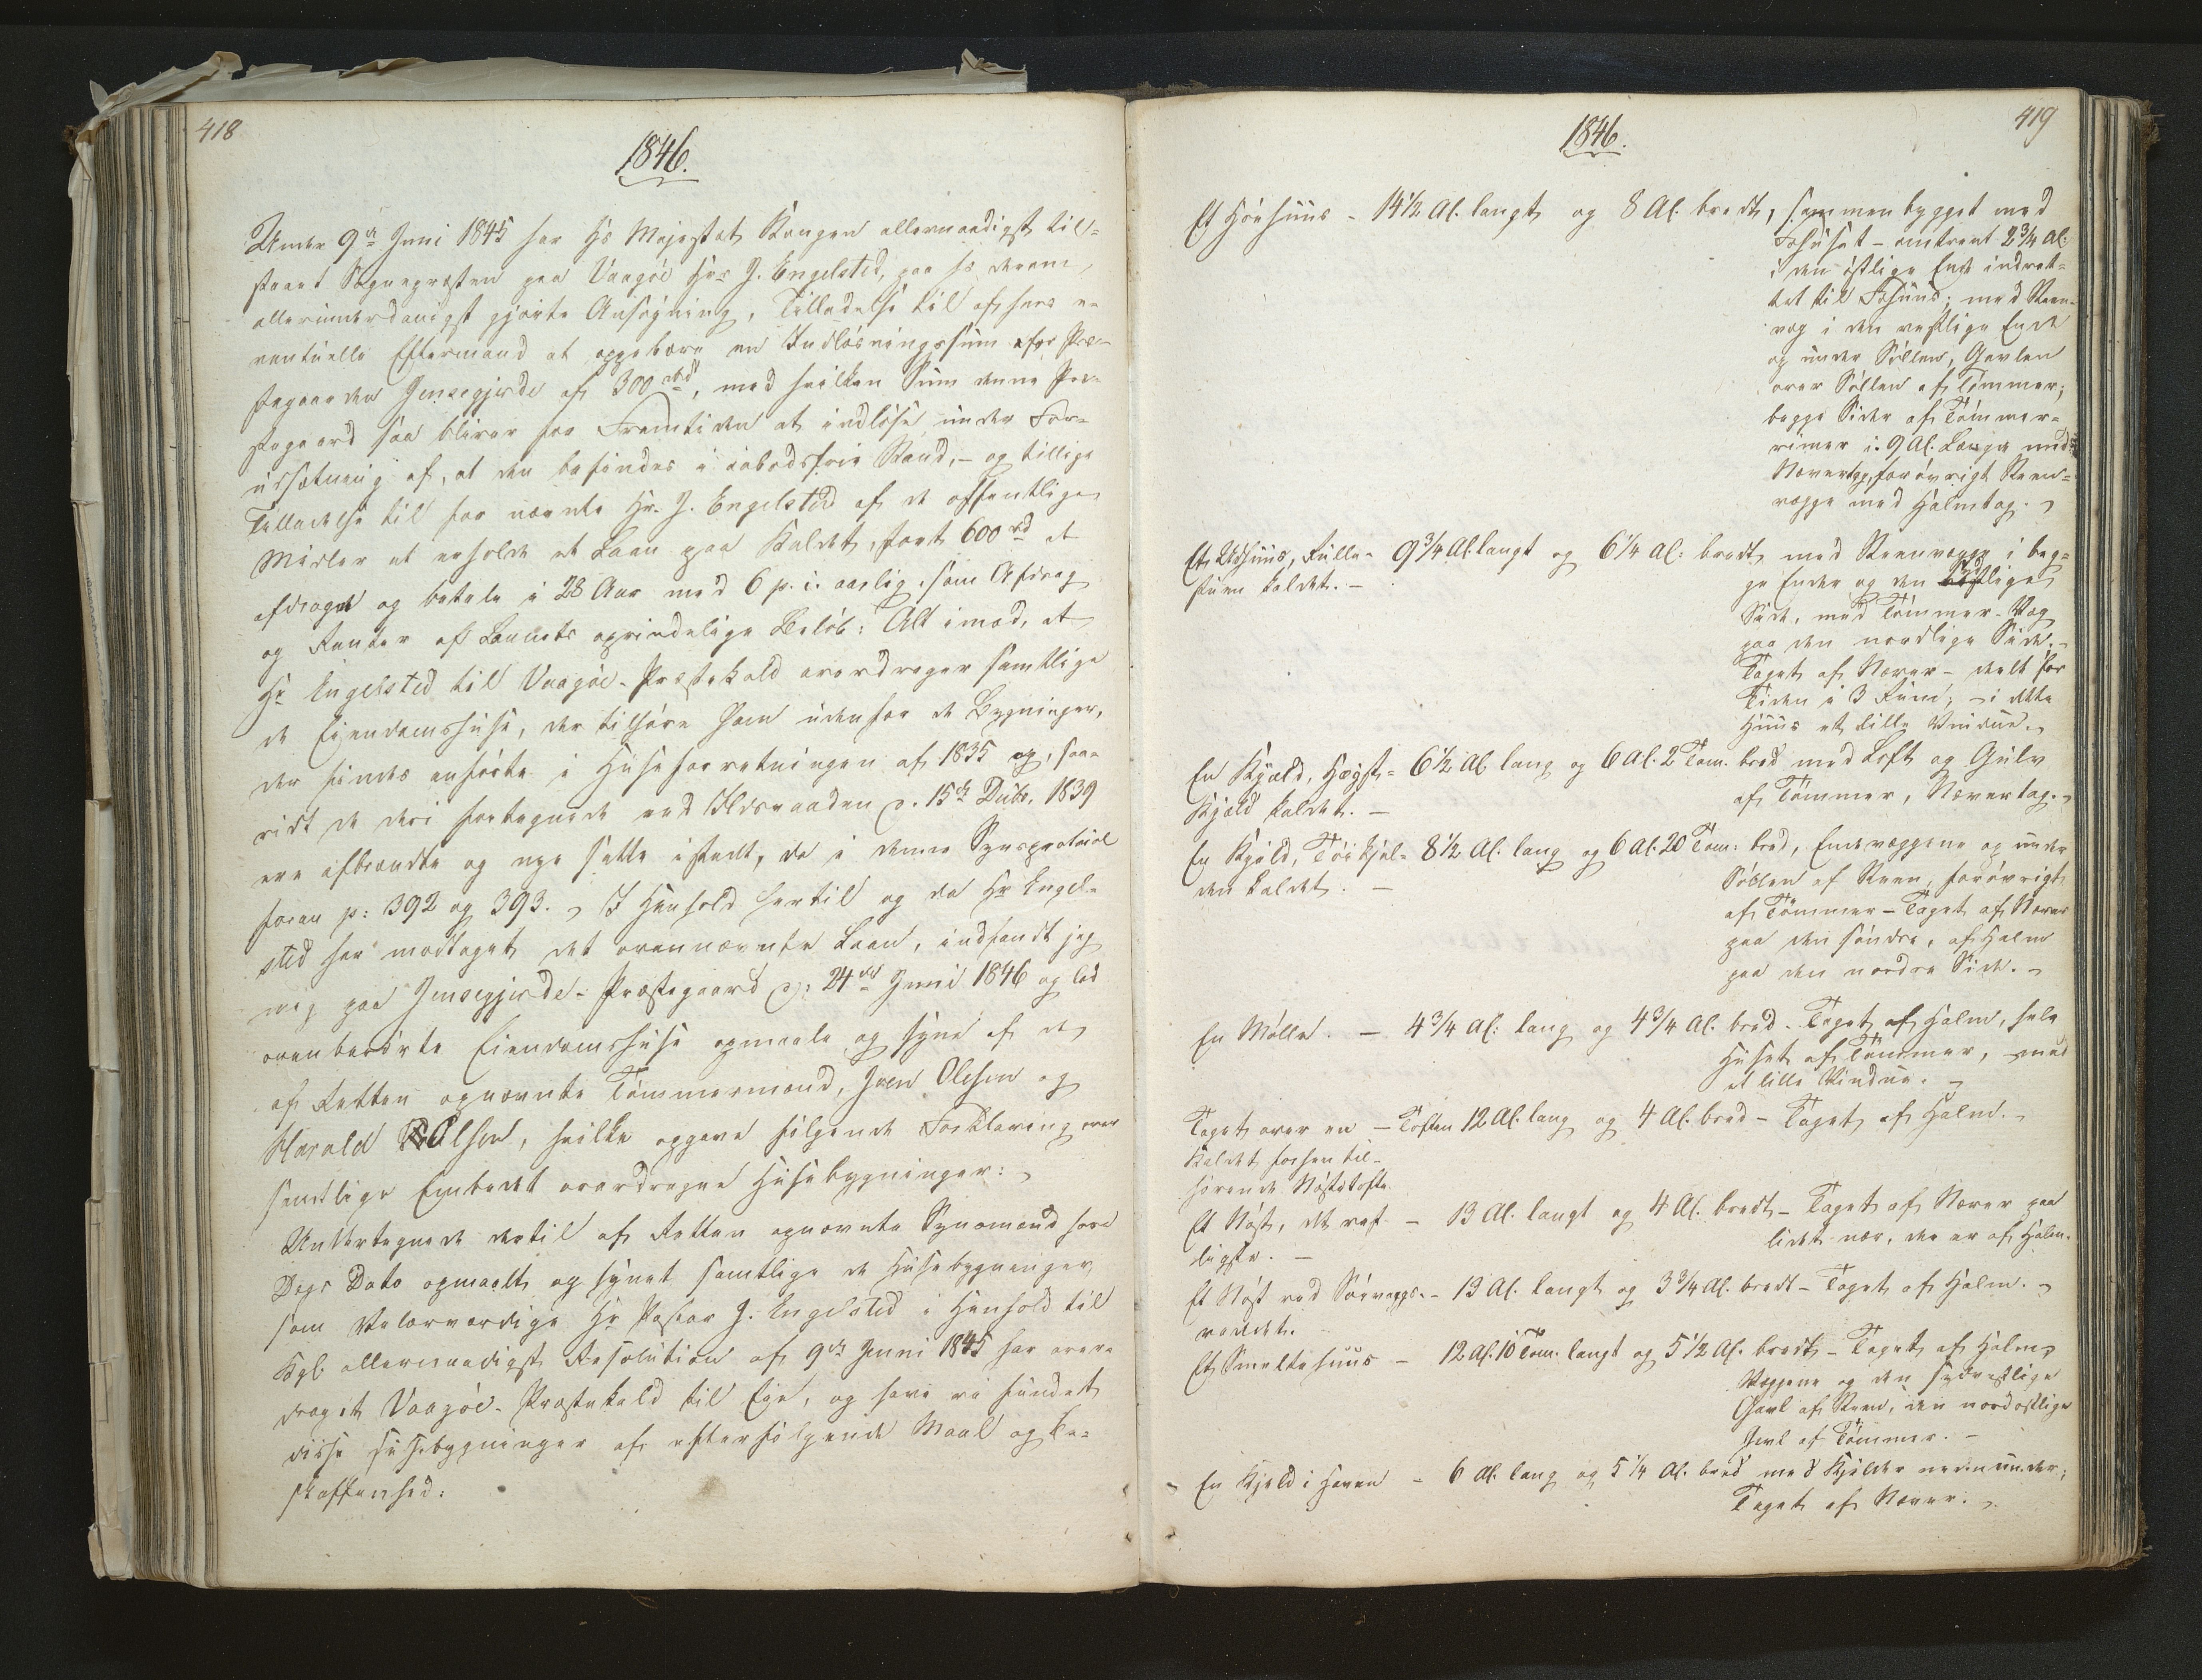 418
1846.
Under 9de Juni 1845 har Hs Majestæt Kongen allernaadigst til-
staaet Sognepræsten paa Vaagöe Hrr J. Engelsted, paa hs derom
allerunderdanigst gjorte Ansøgning, Tilladelse til af hans e-
ventuelle Eftermand at oppebære en Indløsningssum for Præ-
stegaarden Jensegjerde af 300 rbd, med hvilken Sum denne Præ-
stegaard saa bliver for Fremtiden at indløse under For-
udsætning af, at den befindes i aabodsfrie Stand, - og tillige
Tilladelse til for nævnte Hr. J. Engelsted af de offentlige
Midler at erholde et Laan paa Kaldet, stort 600 rd at
afdrages og betale i 28 Aar med 6 p. c. aarlig, som Afdrag
og Renter af Laanets oprindelige Beløb: Alt imod, at
Hr Engelsted til Vaagöe-Præstekald overdrager samtlige
de Eiendomshuse, der tilhøre ham udenfor de Bygninger,
der findes anførte i Huseforretningen af 1835 og, saa-
vidt de deri fortegnede ved Ildsvaaden d. 15de Dcbr. 1839
ere afbrændte og nye satte istedet, da i denne Synsprotocol
foran p: 392 og 393. I Henhold hertil og da Hr Engel-
sted har modtaget det ovennævnte Laan, indfandt jeg
mig paa Jensegjerde-Præstegaard d: 24de Juni 1846 og lod
ovenberørte Eiendomshuse opmaale og syne af de
af Retten opnævnte Tømmermænd, Joen Olesen og
Harald Olsen, hvilke opgave følgende Forklaring over
samtlige Embedet overdragne Husebygninger:
Undertegnede dertil af Retten opnævnte Synsmænd have
Dags Dato opmaalt og synet samtlige de Husebygninger
som Velærværdige Hr Pastor J. Engelsted i Henhold til
Kgl. allernaadigst Resolution af 9de Juni 1845 har over-
draget Vaagöe-Præstekald til Eie, og have vi fundet
disse Husebygninger af efterfølgende Maal og Be-
skaffenhed:
419
1846.
Et Höehuus - 14 1/2 Al. langt og 8 Al. bredt, sammenbygget med
Fæhuset - omtrent 2 3/4 Al:
i den østlige Ende indret-
tet til Fæhuus; med Steen-
væg i den vestlige Ende
og under Syllen, Gavlen
over Syllen af Tømmer;
begge Sider af Tømmer-
rimer i 9 Al. Længde med
Nævertag, forøvrigt Steen-
vægge med Halmtag.
Et Udhuus, Rulle- 9 3/4 Al. langt og 6 1/4 Al: bredt med Steenvægge i beg-
stuen kaldet. -
ge Ender og den sydlige
Side, med Tømmer-Væg
paa den nordlige Side. -
Taget af Næver - deelt for
Tiden i 3 Rum; - i dette
Huus et lille Vindue.
En Kjeld, Høgst- 6 1/2 Al lang og 6 Al. 2 Tom. bred med Loft og Gulv
Kjeld kaldet. -
af Tømmer, Nævertag.
En Kjeld, Töi Kjel- 8 1/2 Al. lang og 6 Al. 20 Tom: bred, Endevæggene og under
den kaldet. -
Syllen af Steen, forøvrigt
af Tømmer - Taget af Næver
paa den søndre, af Halm
paa den nordre Side.
En Mölle. - 4 3/4 Al: lang og 4 3/4 Al. bred - Taget af Halm, hele
Huset af Tømmer, med
et lille Vindue.
Taget over en - Toften 12 Al. lang og 4 Al. bred - Taget af Halm.
Kaldet forhen til-
hørende Nøstetofte.
Et Nøst, det vest- - 13 Al. langt og 4 Al. bredt - Taget af Næver paa
ligste. -
lidet nær, der er af Halm.
Et Nøst ved Sörvaags- - 13 Al. langt og 3 3/4 Al. bredt - Taget af Halm.
vandet.
Et Smeltehuus - 12 Al. 10 Tom. langt og 5 1/2 Al. bredt - Taget af Halm,
Væggene og den sydvestlige
Gavl af Steen, den nordostlige
Gavl af Tømmer. -
En Kjeld i Haven - 6 Al. lang og 5 1/4 Al. bred med Kjelder nedenunder;
Taget af Næver.